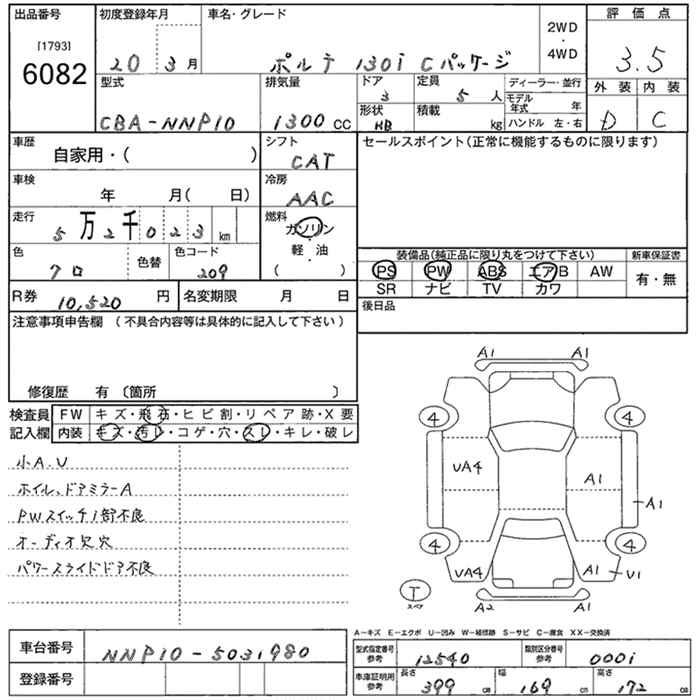 出品番号
[1793]
6082
初度登録年月
20 3月
車名・グレード
ポルテ 130i Cパッケージ
2WD
・
4WD
評価点
3.5
外装 内装
D C
型式
CBA-NNP10
排気量
1300 CC
ドア
3
形状
HB
定員
5 人
積載
kg
ディーラー・並行
モデル年式 年
ハンドル 左・右
車歴
自家用・( )
シフト
CAT
セールスポイント(正常に機能するものに限ります)
車検
年 月( 日)
冷房
AAC
走行
5万2千023 km
燃料
ガソリン
・
軽・油
( )
色
クロ
色替
色コード
209
装備品(純正品に限り丸をつけて下さい)
新車保証書
PS PW ABS エアB AW
有・無
SR ナビ TV カワ
R券
10,520 円
名変期限 月 日
後日品
注意事項申告欄 (不具合内容等は具体的に記入して下さい)
修復歴 有 〔箇所 〕
検査員記入欄
FW キズ・飛石・ヒビ割・リペア跡・X要
内装 キズ・汚レ・コゲ・穴・スレ・キレ・破レ
小A.U
ホイル、ドアミラーA
PWスイッチ1部不良
オーディオ欠穴
パワースライドドア不良
A1 A1
4 4
UA4 A1
A1
4 4
UA4 A1 U1
T
スペア
A2 A1
A-キズ E-エクボ U-凹み W-補修跡 S-サビ C-腐食 XX-交換済
車台番号
NNP10-5031980
登録番号
型式指定番号
参考
12540
類別区分番号
参考
0001
車庫証明用
参考
長さ
399 cm
幅
169 cm
高さ
172 cm